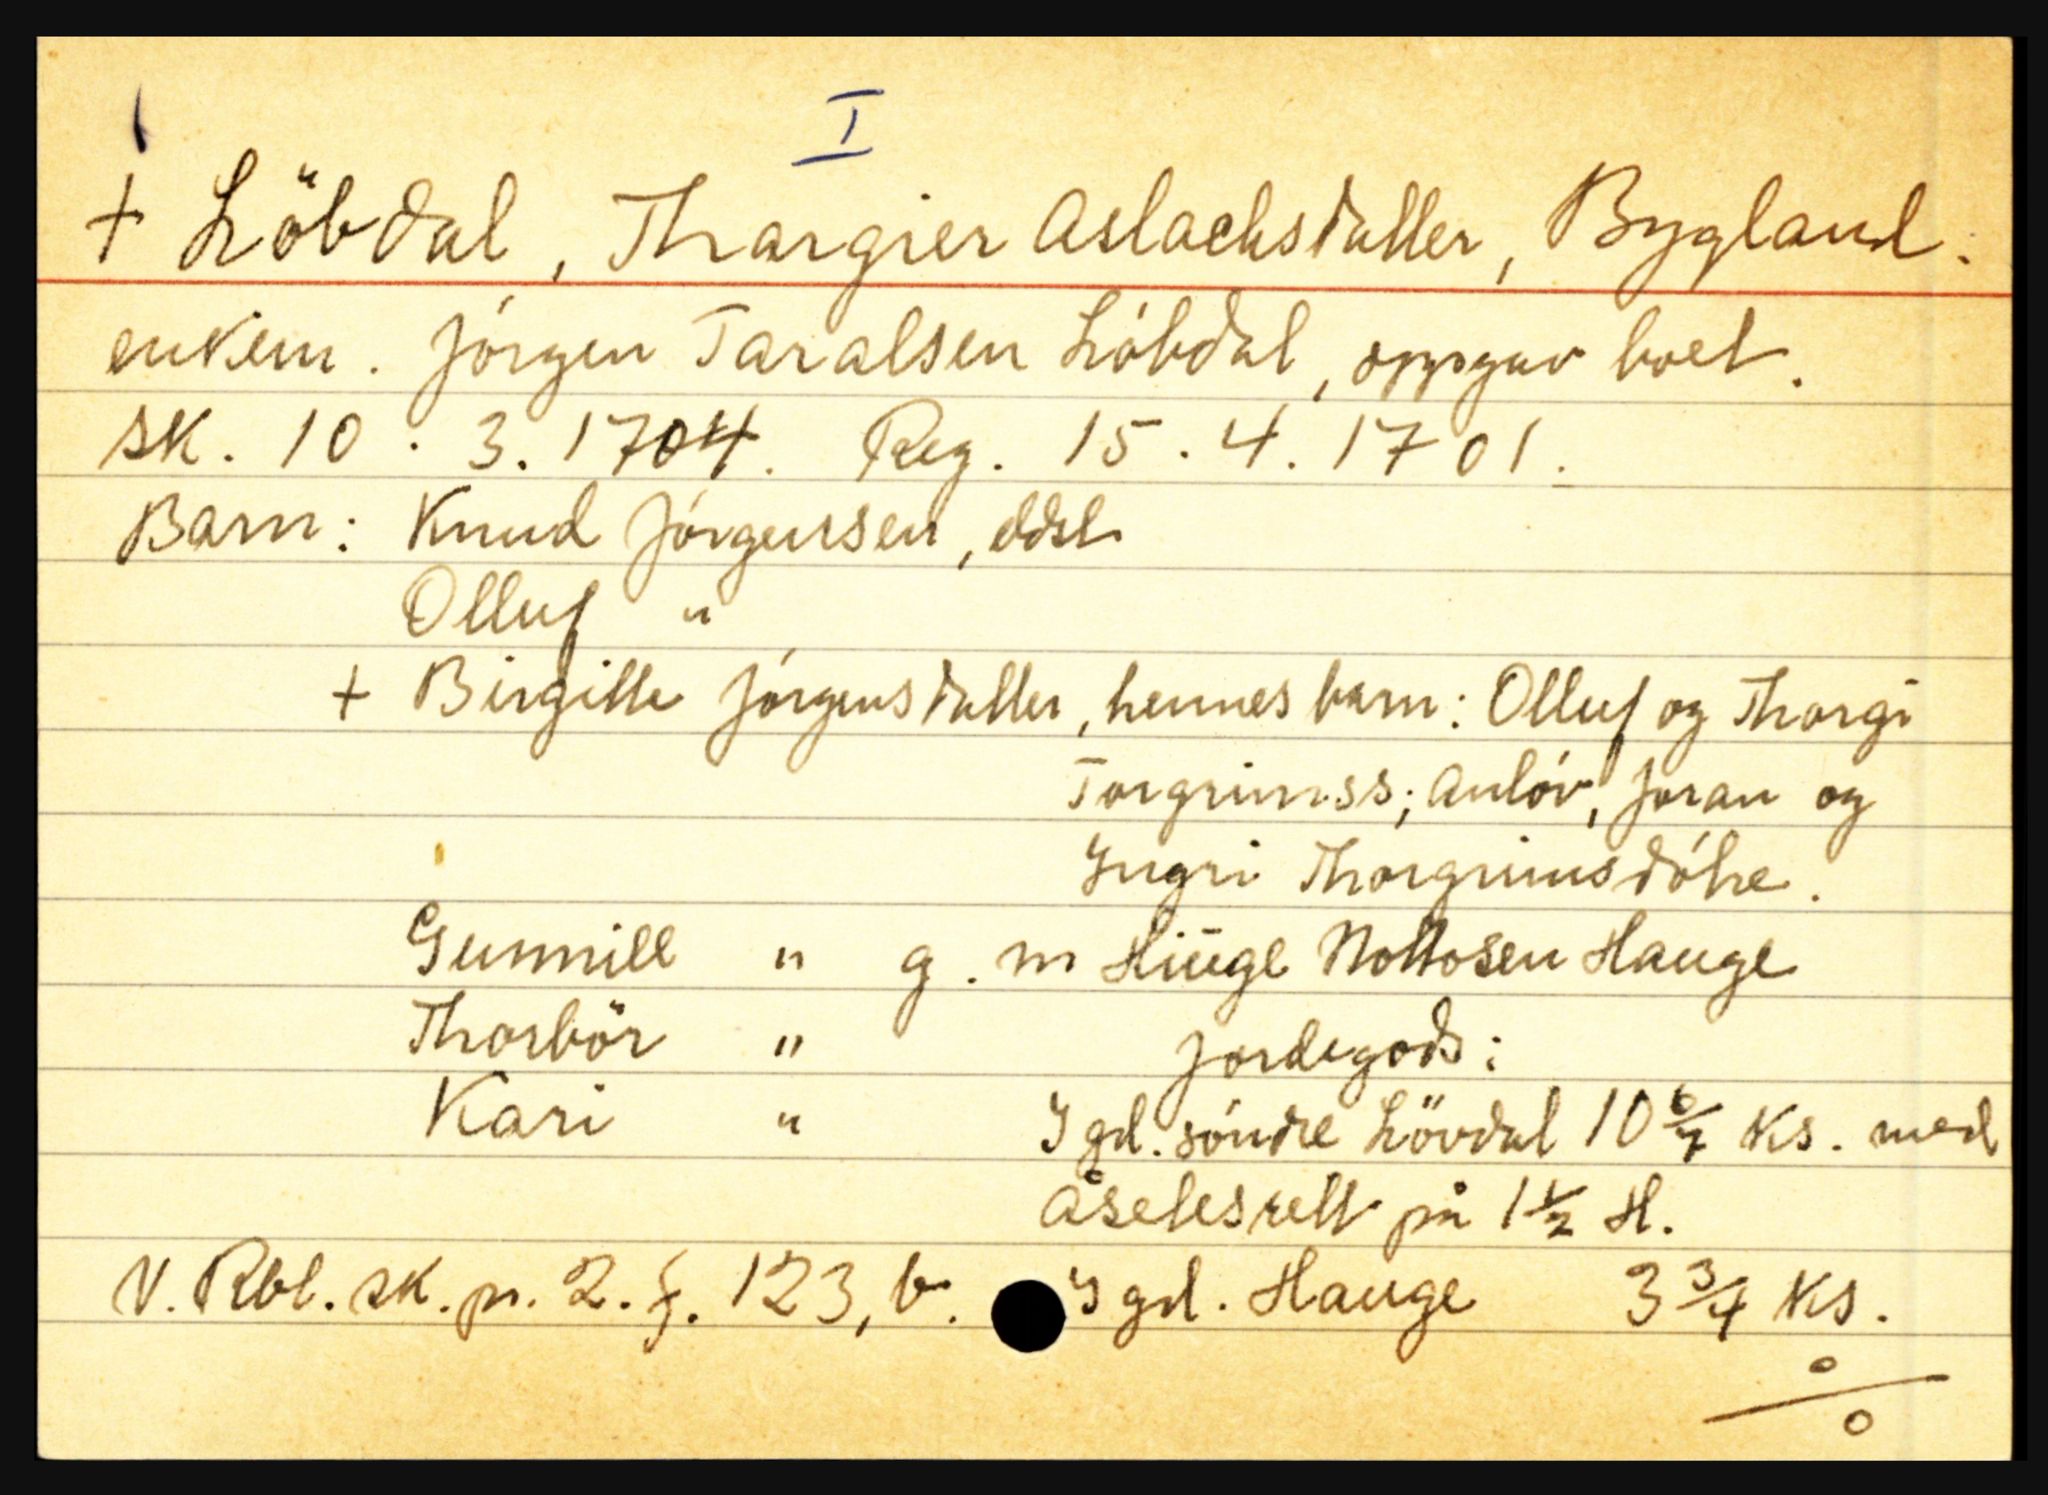 I
+ Löbdal, Thargier Aslachsdatter, Bygland.
enkem. Jórgen Taralsen Lóbdal, oppgav boet.
Sk. 10. 3. 1704. Reg. 15. 4. 1701.
Barn: Knud Jórgensen, eldst
Olluf "
+ Birgitte Jórgensdatter, hennes barn: Olluf og Thorgi
Torgrimss; Anlóv, Joran og
Yngri Thorgrimsdótre.
Gunnill " g. m Hüge Nottosen Hauge
Thorbör " Jordegods:
Kari " I gd. sóndre Lövdal 10 6/7 Ks. med
Åsetesrett på 1 1/2 H.
V. Rbl. sk. pr. 2. f. 123, b. I gd. Hauge 3 3/4 Ks.
%